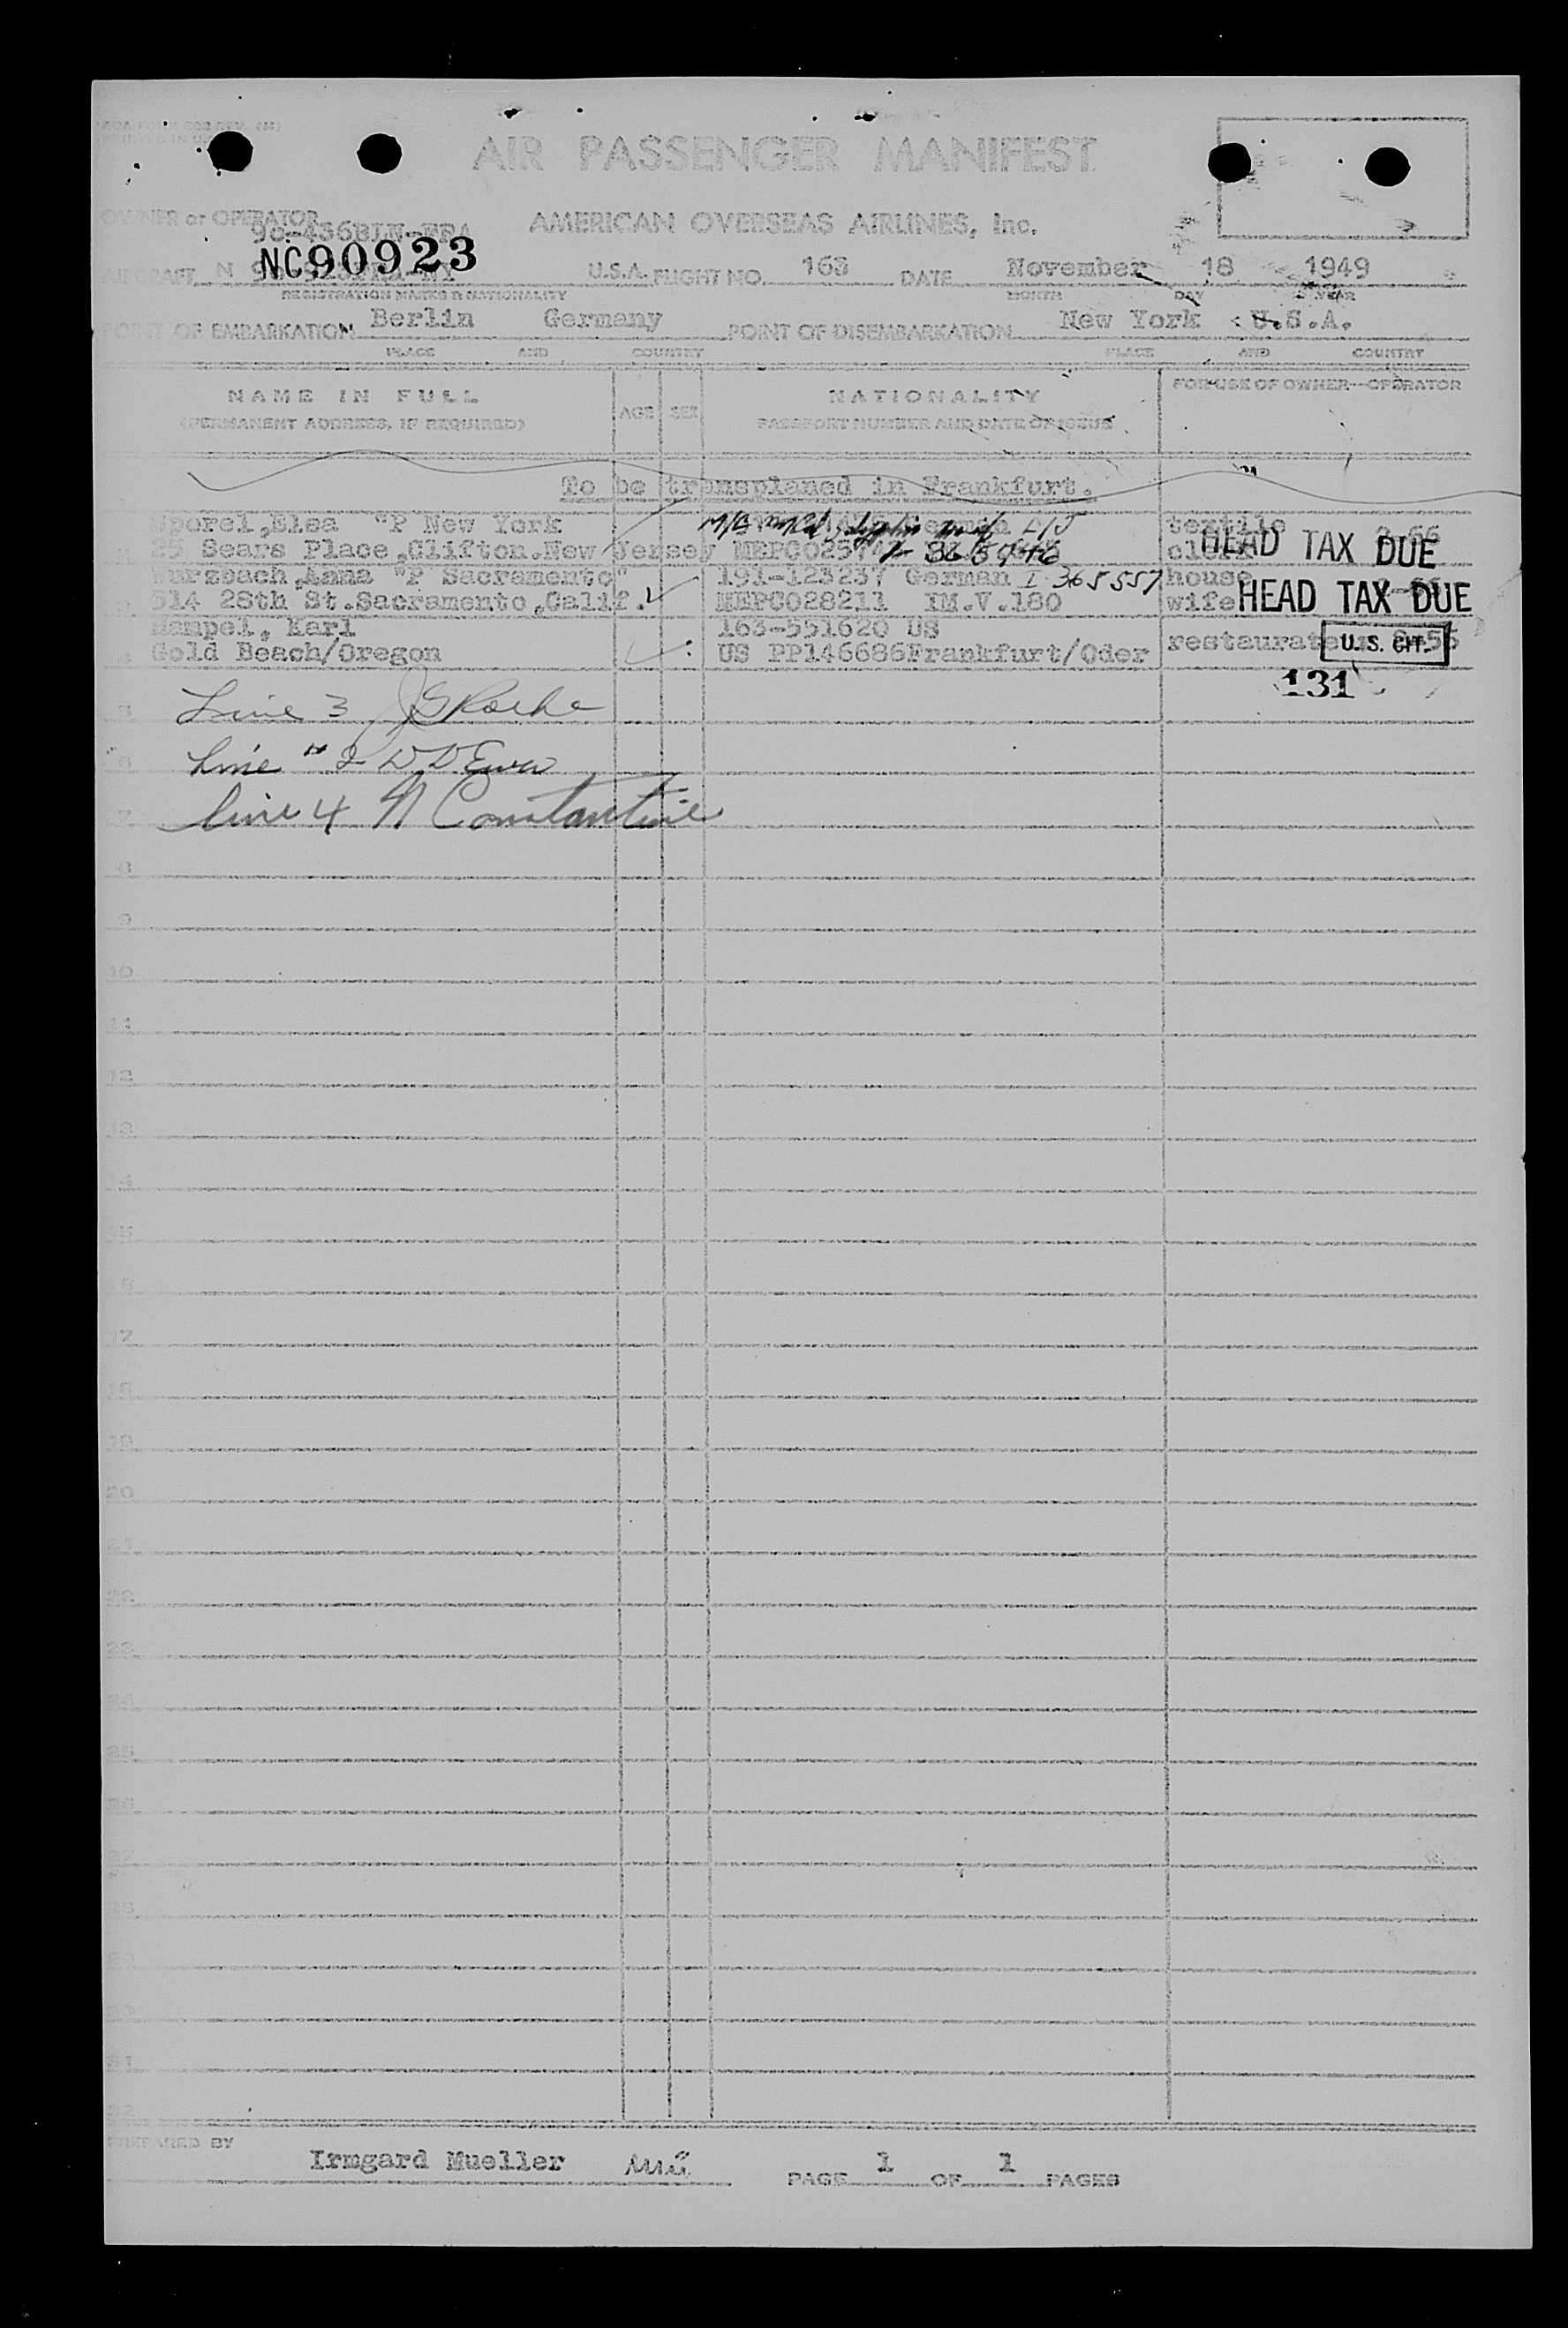 AIR PASSENGER MANIFEST
OWNER or OPERATOR AMERICAN OVERSEAS AIRLINES, Inc.
NC90923
AIRCRAFT N U.S.A. FLIGHT NO. 163 DATE November 18 1949
REGISTRATION MARKS & NATIONALITY MONTH DAY YEAR
POINT OF EMBARKATION Berlin Germany POINT OF DISEMBARKATION New York U.S.A.
PLACE AND COUNTRY PLACE AND COUNTRY
NAME IN FULL AGE SEX NATIONALITY FOR USE OF OWNER—OPERATOR
(PERMANENT ADDRESS, IF REQUIRED) PASSPORT NUMBER AND DATE OF ISSUE
To be transplaned in Frankfurt.
Sporel,Elsa "P New York textile
25 Sears Place,Clifton.New Jersey HEAD TAX DUE
Wurzbach,Anna "P Sacramento" 191-123237 German I 365557 house
514 28th St.Sacramento,Calif. MEPCO28211 IM.V.180 wife HEAD TAX DUE
Hampel, Karl 163-551620 US
4 Gold Beach/Oregon US PP146686Frankfurt/Oder restaurateur U.S. CIT.
131
5 Line 3
6 Line " 2
7 line 4 N Constantine
8
9
10
11
12
13
14
15
16
17
18
19
20
21
22
23
24
25
26
27
28
29
30
31
32
PREPARED BY
Irmgard Mueller PAGE 1 OF 1 PAGES